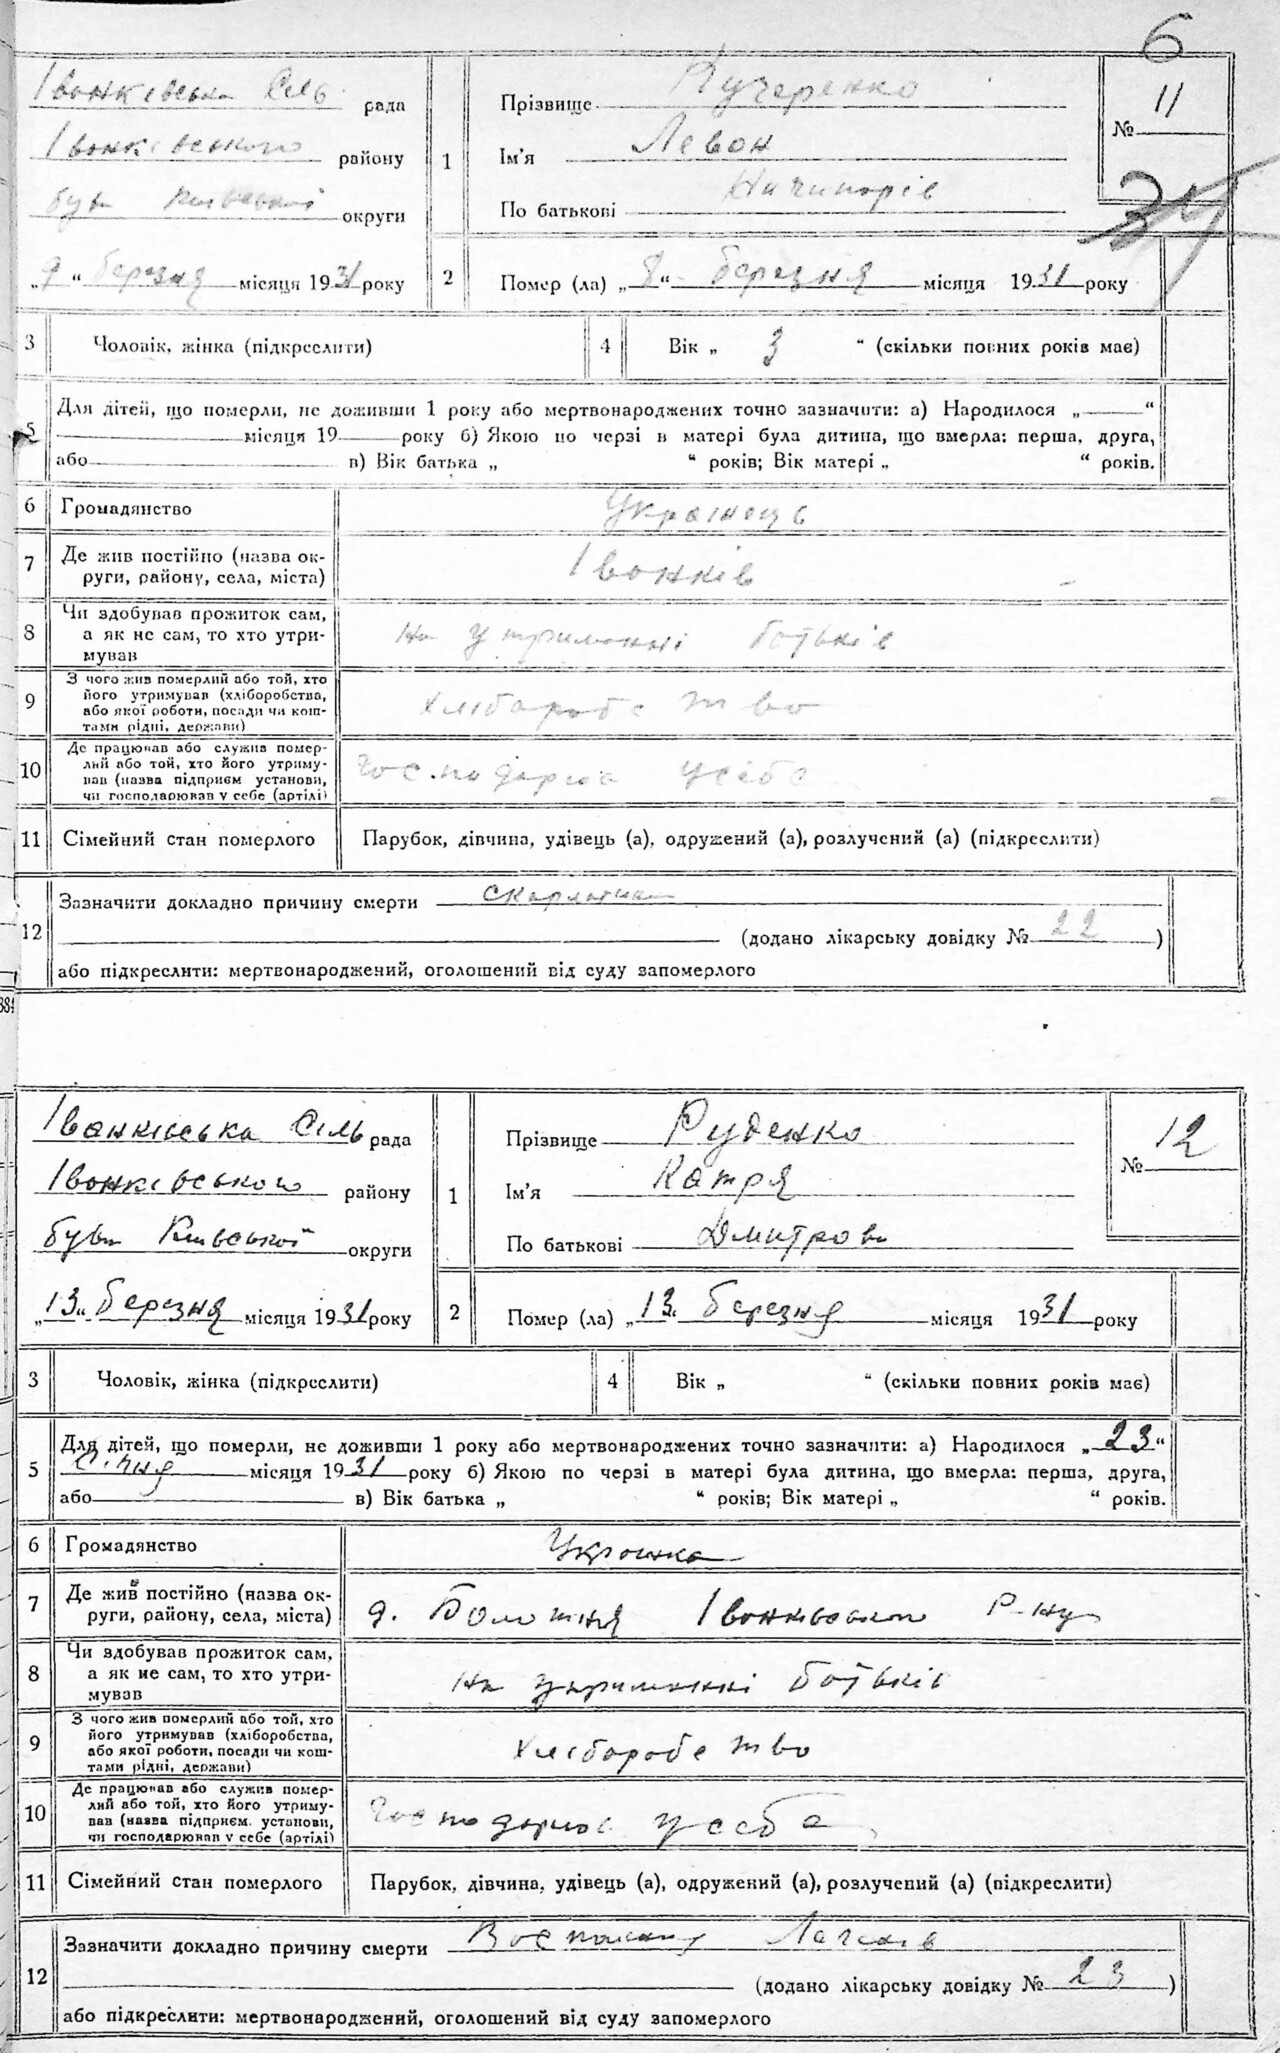 6
Іванківська Сіль рада
Іванківського району
був Київської округи
„9“ березня місяця 1931 року
1
Прізвище Кучеренко
Ім'я Левон
По батькові Ничипорів
№ 11
2 Помер (ла) „8“ березня місяця 1931 року
3 Чоловік, жінка (підкреслити) 4 Вік „ 3 “ (скільки повних років має)
5
Для дітей, що померли, не доживши 1 року або мертвонароджених точно зазначити: а) Народилося „ “
місяця 19 року б) Якою по черзі в матері була дитина, що вмерла: перша, друга,
або в) Вік батька „ “ років; Вік матері „ “ років.
6 Громадянство Українець
7 Де жив постійно (назва ок-
руги, району, села, міста) Іванків
8 Чи здобував прожиток сам,
а як не сам, то хто утри-
мував На утриманні батьків
9 З чого жив померлий або той, хто
його утримував (хліборобства,
або якої роботи, посади чи кош-
тами рідні, держави) Хліборобство
10 Де працював або служив помер-
лий або той, хто його утриму-
вав (назва підприєм установи,
чи господарював у себе (артілі) Господарює у себе
11 Сімейний стан померлого Парубок, дівчина, удівець (а), одружений (а), розлучений (а) (підкреслити)
12
Зазначити докладно причину смерти скарлатина
(додано лікарську довідку № 22 )
або підкреслити: мертвонароджений, оголошений від суду запомерлого
Іванківська Сіль рада
Іванківського району
був Київської округи
„13“ березня місяця 1931 року
1
Прізвище Руденко
Ім'я Катря
По батькові Дмитрова
№ 12
2 Помер (ла) „13“ березня місяця 1931 року
3 Чоловік, жінка (підкреслити) 4 Вік „ “ (скільки повних років має)
5
Для дітей, що померли, не доживши 1 року або мертвонароджених точно зазначити: а) Народилося „23“
Січня місяця 1931 року б) Якою по черзі в матері була дитина, що вмерла: перша, друга,
або в) Вік батька „ “ років; Вік матері „ “ років.
6 Громадянство Українка
7 Де жив постійно (назва ок-
руги, району, села, міста) д. Болотня Іванківського Р-ну
8 Чи здобував прожиток сам,
а як не сам, то хто утри-
мував На утриманні батьків
9 З чого жив померлий або той, хто
його утримував (хліборобства,
або якої роботи, посади чи кош-
тами рідні, держави) Хліборобство
10 Де працював або служив помер-
лий або той, хто його утриму-
вав (назва підприєм. установи,
чи господарював у себе (артілі) Господарює у себе
11 Сімейний стан померлого Парубок, дівчина, удівець (а), одружений (а), розлучений (а) (підкреслити)
12
Зазначити докладно причину смерти Воспаления
(додано лікарську довідку № 23 )
або підкреслити: мертвонароджений, оголошений від суду запомерлого